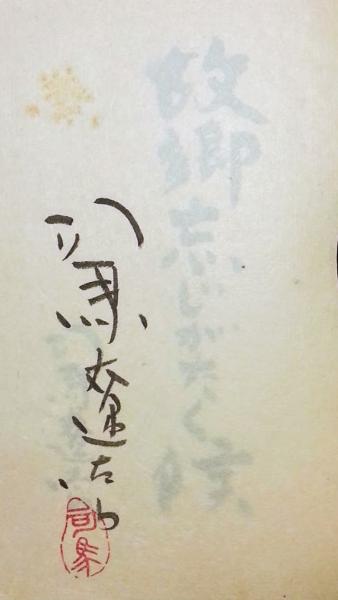 故郷忘じがたく候
司馬遼太郎
司馬